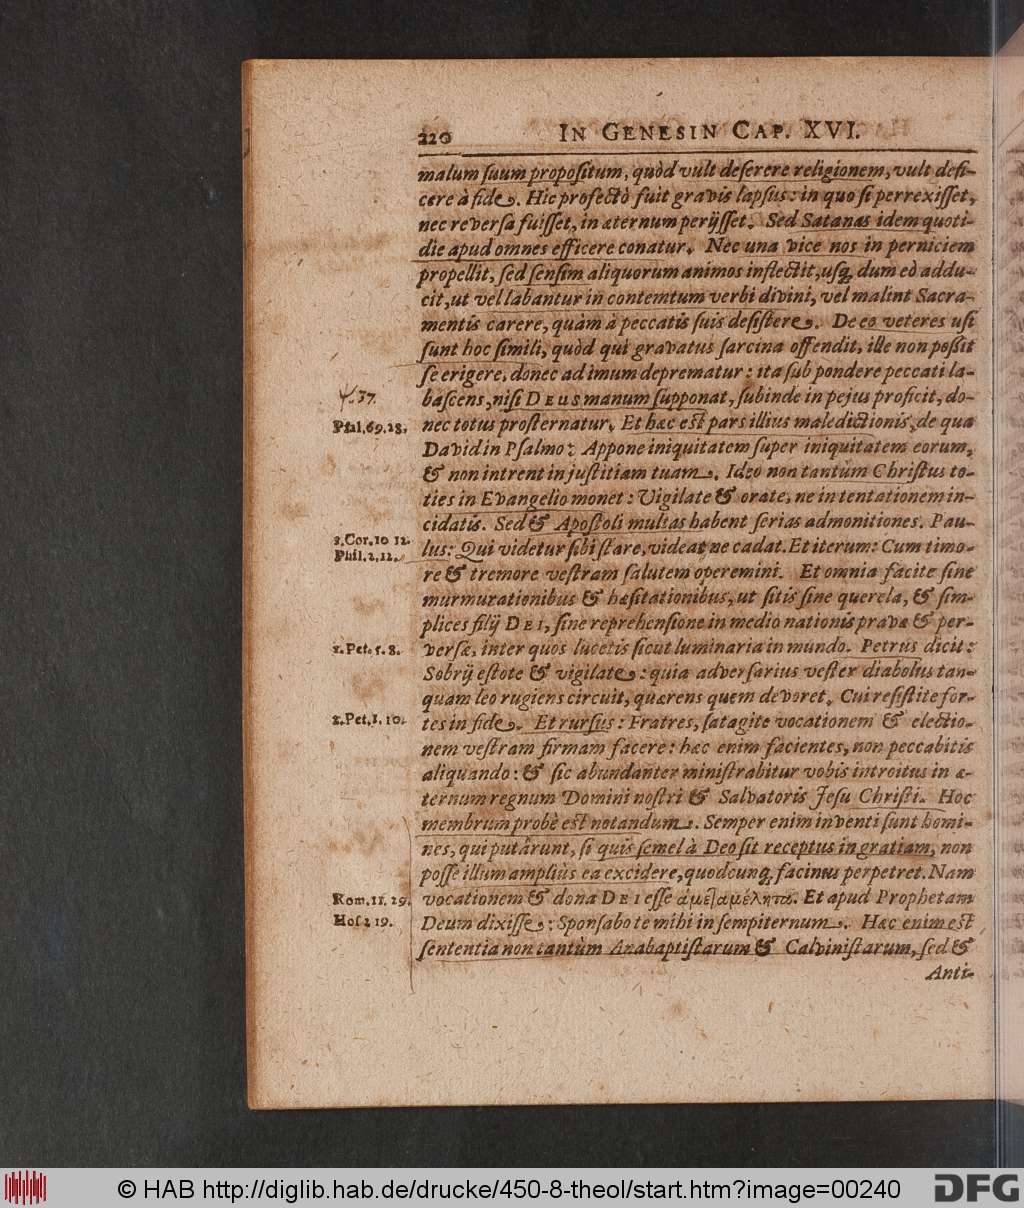 220 IN GENESIN CAP. XVI.
malum suum propositum, quòd vult deserere religionem, vult defi-
cere à fide. Hic profectò fuit gravis lapsus: in quo si perrexisset,
nec reversa fuisset, in æternum perijsset. Sed Satanas idem quoti-
die apud omnes efficere conatur. Nec una vice nos in perniciem
propellit, sed sensim aliquorum animos inflectit, usq; dum eò addu-
cit, ut vel labantur in contemtum verbi divini, vel malint Sacra-
mentis carere, quàm à peccatis suis desistere. De eo veteres usi
sunt hoc simili, quòd qui gravatus sarcina offendit, ille non possit
se erigere, donec ad imum deprematur: ita sub pondere peccati la-
ψ. 37.
bascens, nisi DEUS manum supponat, subinde in pejus proficit, do-
Psal. 69. 28.
nec totus prosternatur. Et hæc est pars illius maledictionis, de qua
David in Psalmo: Appone iniquitatem super iniquitatem eorum,
& non intrent in justitiam tuam. Ideo non tantùm Christus to-
ties in Evangelio monet: Vigilate & orate, ne in tentationem in-
cidatis. Sed & Apostoli multas habent serias admonitiones. Pau-
1. Cor. 10 12.
lus: Qui videtur sibi stare, videat ne cadat. Et iterum: Cum timo-
Phil. 2, 12.
re & tremore vestram salutem operemini. Et omnia facite sine
murmurationibus & hæsitationibus, ut sitis sine querela, & sim-
plices filij DEI, sine reprehensione in medio nationis pravæ & per-
1. Pet. 5. 8.
versæ, inter quos lucetis sicut luminaria in mundo. Petrus dicit:
Sobrij estote & vigilate: quia adversarius vester diabolus tan-
quam leo rugiens circuit, quærens quem devoret. Cui resistite for-
2. Pet. 1. 10.
tes in fide. Et rursus: Fratres, satagite vocationem & electio-
nem vestram firmam facere: hæc enim facientes, non peccabitis
aliquando: & sic abundanter ministrabitur vobis introitus in æ-
ternum regnum Domini nostri & Salvatoris Jesu Christi. Hoc
membrum probè est notandum. Semper enim inventi sunt homi-
nes, qui putârunt, si quis semel à Deo sit receptus in gratiam, non
posse illum ampliùs ea excidere, quodcunq; facinus perpetret. Nam
Rom. 11. 29.
vocationem & dona DEI esse ἀμεταμέλητα. Et apud Prophetam
Hos 2 19.
Deum dixisse: Sponsabo te mihi in sempiternum. Hæc enim est
sententia non tantùm Anabaptistarum & Calvinistarum, sed &
Anti-
© HAB http://diglib.hab.de/drucke/450-8-theol/start.htm?image=00240
DFG